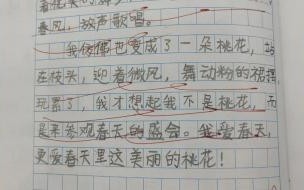 春风，放声歌唱。
我仿佛也变成了一朵桃花，站
在枝头，迎着微风，舞动粉的裙摆
玩累了，我才想起我不是桃花，而
是来参观春天的盛会。我爱春天，
更爱春天里这美丽的桃花！